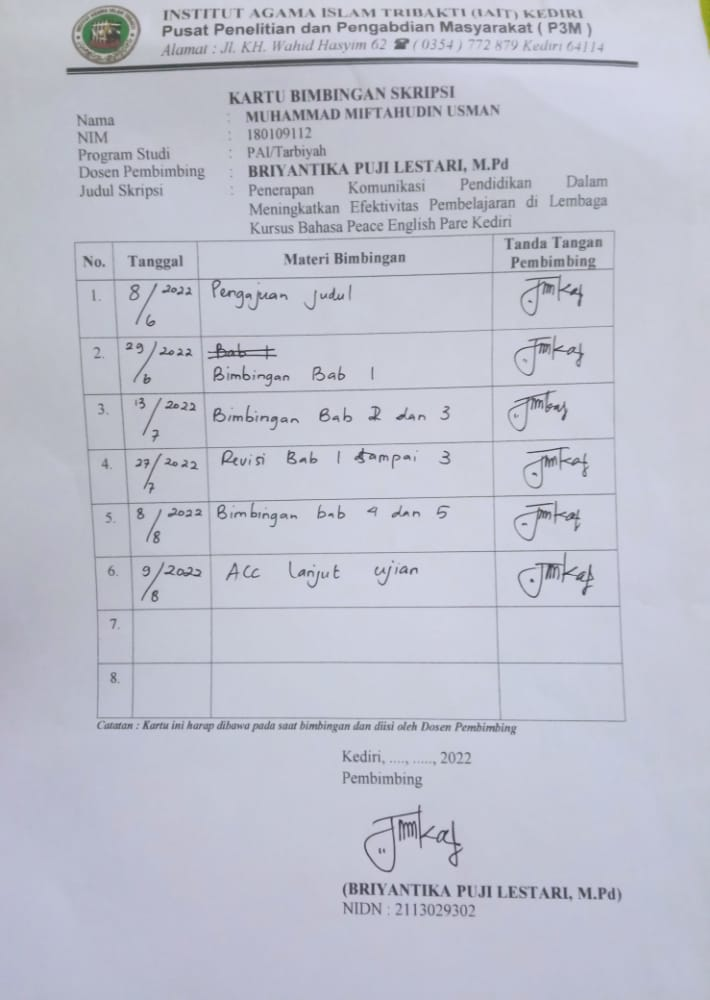 INSTITUT AGAMA ISLAM TRIBAKTI (IAIT) KEDIRI
Pusat Penelitian dan Pengabdian Masyarakat ( P3M )
Alamat : Jl. KH. Wahid Hasyim 62 ☎ ( 0354 ) 772 879 Kediri 64114
KARTU BIMBINGAN SKRIPSI
Nama : MUHAMMAD MIFTAHUDIN USMAN
NIM : 180109112
Program Studi : PAI/Tarbiyah
Dosen Pembimbing : BRIYANTIKA PUJI LESTARI, M.Pd
Judul Skripsi : Penerapan Komunikasi Pendidikan Dalam
Meningkatkan Efektivitas Pembelajaran di Lembaga
Kursus Bahasa Peace English Pare Kediri
No. Tanggal Materi Bimbingan Tanda Tangan
Pembimbing
1. 8/6 2022 Pengajuan judul
2. 29/6 2022 Bab 1
Bimbingan Bab 1
3. 13/7 2022 Bimbingan Bab 2 dan 3
4. 27/7 2022 Revisi Bab 1 sampai 3
5. 8/8 2022 Bimbingan bab 4 dan 5
6. 9/8 2022 ACC lanjut ujian
7.
8.
Catatan : Kartu ini harap dibawa pada saat bimbingan dan diisi oleh Dosen Pembimbing
Kediri, ...., ....., 2022
Pembimbing
(BRIYANTIKA PUJI LESTARI, M.Pd)
NIDN : 2113029302